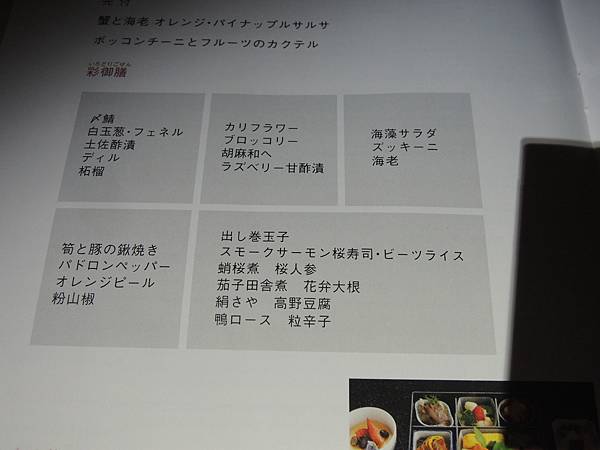 先付
蟹と海老 オレンジ・パイナップルサルサ
ボッコンチーニとフルーツのカクテル
いろどりごぜん
彩御膳
〆鯖
白玉葱・フェネル
土佐酢漬
ディル
柘榴
カリフラワー
ブロッコリー
胡麻和へ
ラズベリー甘酢漬
海藻サラダ
ズッキーニ
海老
筍と豚の鍬焼き
パドロンペッパー
オレンジピール
粉山椒
出し巻玉子
スモークサーモン桜寿司・ビーツライス
蛸桜煮 桜人参
茄子田舎煮 花弁大根
絹さや 高野豆腐
鴨ロース 粒辛子